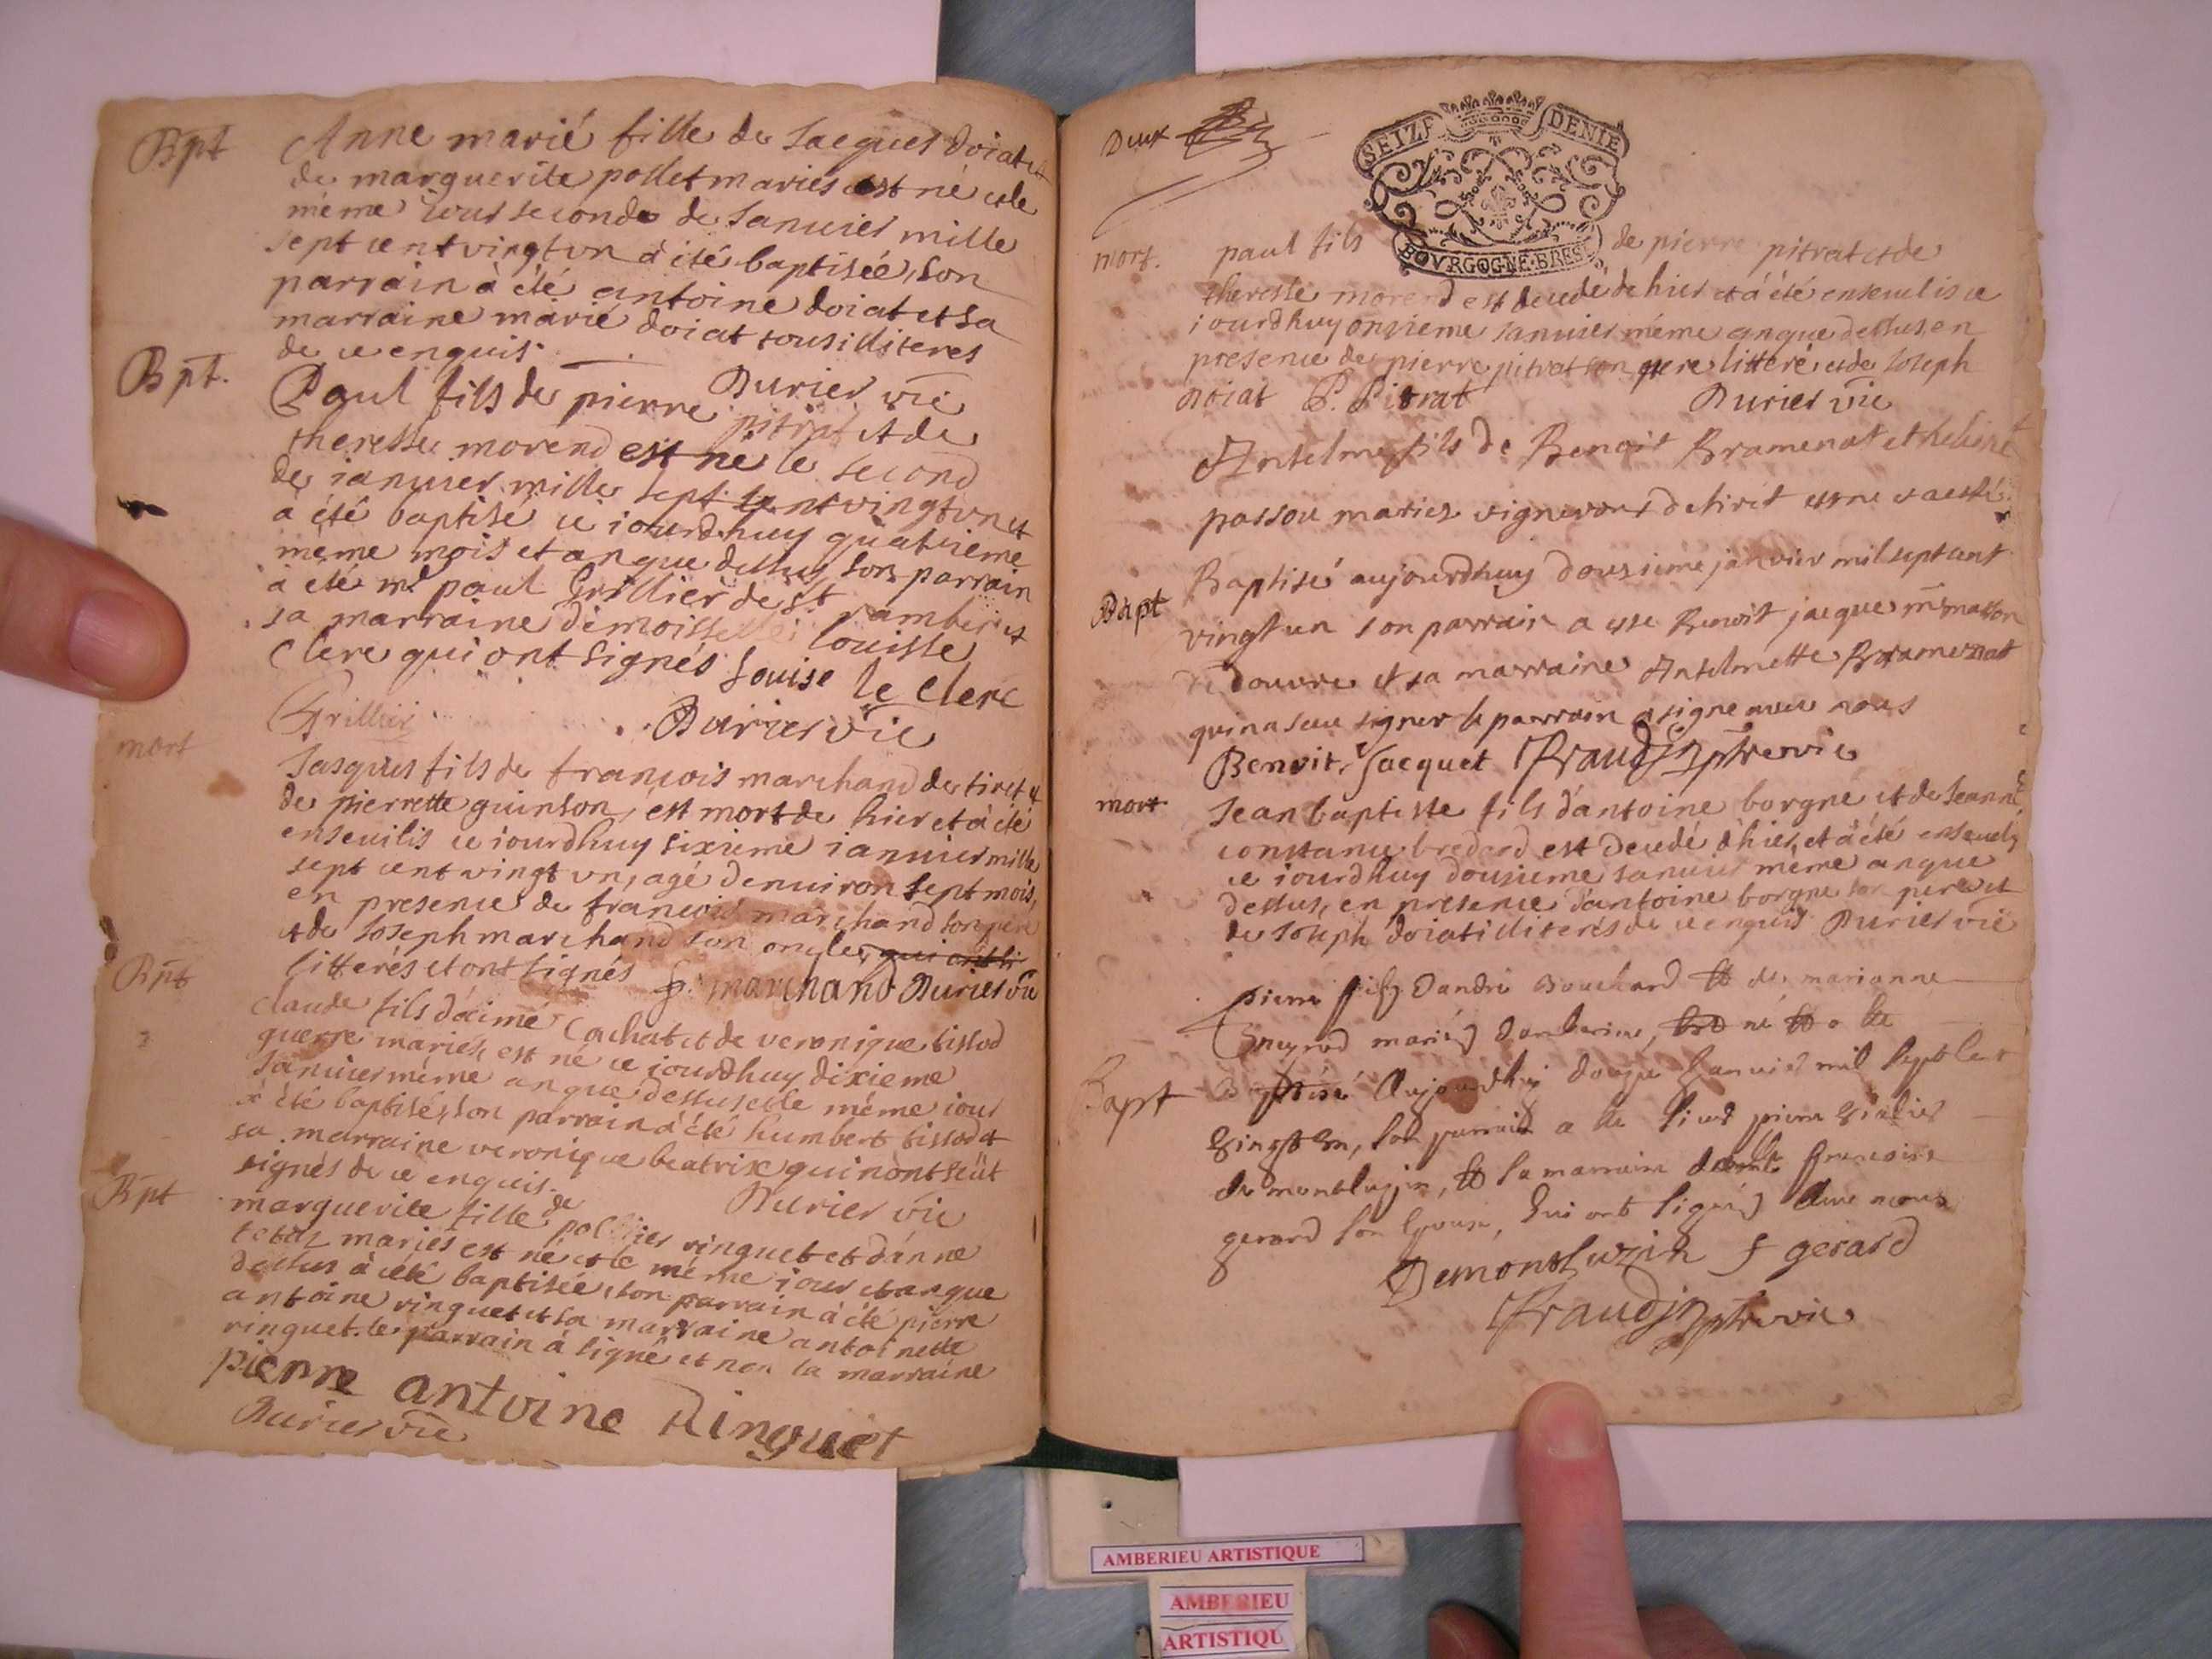 Bpt
Anne marié fille de Jacques doiat et
de marguerite pollet mariés est né et le
même iour seconde de Januier mille
sept cent vingt vn à été baptisée, son
parrain à été antoine doiat et sa
marraine marie doiat tous illiteres
de ce enquis.
Durier vic
Bpt.
Paul fils de pierre pitrat et de
theresse morend est né le second
de ianuier mille sept cent vingt vn et
a été baptisé ce iourdhuy quatrieme
même mois et an que dessus, son parrain
à été mr paul Grillier de St rambert et
sa marraine demoiselle louisse
Clere qui ont signés Louise le Clerc
Grillier
Durier vic
mort
Jasques fils de francois marchand de tiret et
de pierrette guinson, est mort de hier et à été
enseuilis ce iourdhuy sixieme ianuier mille
sept cent vingt vn, agé denuiron sept mois,
en presence de francois marchand son pere
et de Joseph marchand son oncle, qui ont li
litterés et ont signés f. marchand Durier vic
Bpt
Claude fils d'aime Cachat et de veronique tissod
guerre mariés, est né ce iourdhuy dixieme
Januier même an que dessus et le même iour
à été baptisé, son parrain à été humbert tissod et
sa marraine veronique beatrix qui n'ont seüt
signés de ce enquis.
Durier vic
Bpt
marguerite fille de ringuet et d'anne
mariés est né et le même iour et an que
dessus à été baptisée, son parrain à été pierre
antoine ringuet et sa marraine antoinette
ringuet. le parrain à signé et non la marraine
pierre antoine Ringuet
Durier vic
Deux
SEIZE DENIE
BOVRGOGNE·BRES
mort.
paul fils de pierre pitrat et de
theresse morend est decedé de hier et à été enseuelis ce
iourdhuy onzieme Januier même an que dessus, en
presence de pierre pitrat son pere litteré et de Joseph
Doiat P. Pitrat
Durier vic
Bapt
Antelme fils de Benoit Bramenat et
passou mariez vignerons de tiret est né et a esté
Baptisé aujourdhuy dousieme janvier mil sept cent
vingt un son parrain a esté Benoit jacque
de douvre et sa marraine Antelmette Bramenat
qui na sceu signer le parrain a signe avec nous
Benoit Jacquet Fraudin ptre vic
mort
Jean baptiste fils d'antoine borgne et de Jeanne
constance bredard est decedé d'hier, et à été enseuely
ce iourdhuy dousieme Januier même an que
dessus, en presence d'antoine borgne son pere et
de Joseph doiat illiterés de ce enquis Durier vic
Bapt
Pierre fils Dandré Bouchard et de marianne
mariés né et a été
Baptisé Aujourdhuy douze Januier mil sept cent
Vingt Un, son parrain a été sieur pierre
de montluzin, et sa marraine francoise
gerard son Epouse, qui ont signés Avec nous
Demontluzin f gerard
Fraudin ptre vic
AMBERIEU ARTISTIQUE
AMBERIEU
ARTISTIQU